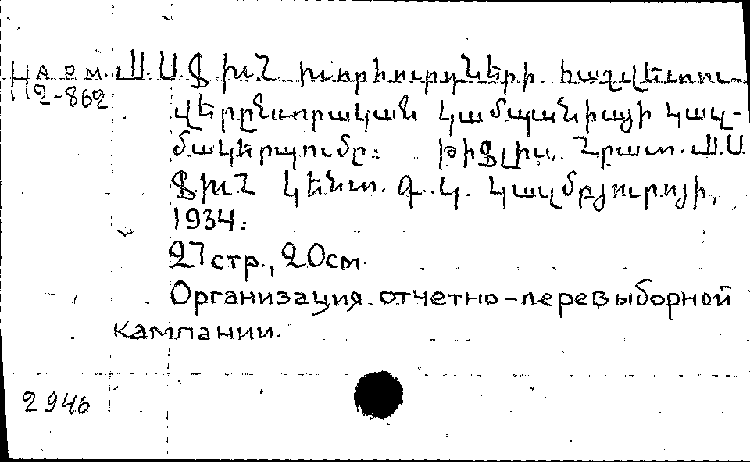 Н А О М. Ա.Ս.Ֆ.Խ.Հ խորհուրդների հաշվետու-
2-862 վերընտրական կամպանիայի կազ-
մակերպումը: Թիֆլիս, Հրատ. Ա.Ս.
Ֆ.Խ.Հ կենտ. Գ.Կ. կազմբյուրոյի,
1934.
27 стр., 20см.
Организация отчетно-перевыборной
кампании.
2946